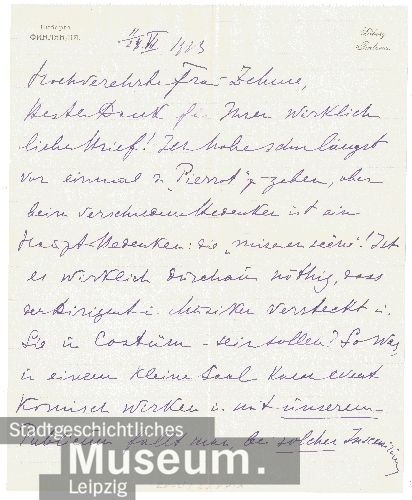 ФИНЛЯНДІЯ.
1913
Hochverehrte Frau Zehme,
Besten Dank für Ihren wirklich
lieben Brief! Ich habe schon längst
vor einmal "Pierrot" zu geben, aber
beim verschiedene Bedenken ist ein
Haupt-Bedenken: die "mise en scène"! Ist
es wirklich durchaus nöthig, dass
der Dirigent u. Musiker versteckt u.
Sie in Costüm – sein sollen? So was
in einem kleinen Saal kann event.
Komisch wirken u. mit unserem
Publicum bei solcher Inscenirung
Stadtgeschichtliches
Museum.
Leipzig